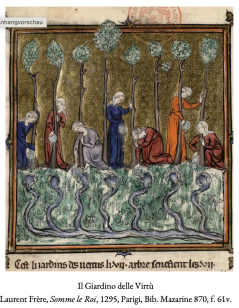 nhangvorschau
Cest li iardins des uertus li .vii. arbre senefient les .vii.
Il Giardino delle Virtù
Laurent Frère, Somme le Roi, 1295, Parigi, Bib. Mazarine 870, f. 61v.